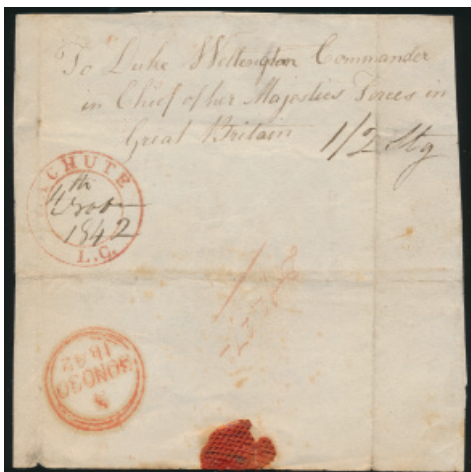 To Duke Wellington Commander
in Chief of her Majesties Forces in
Great Britain 1/2 Stg
CHUTE
th
1842
L.C.
30NO30
1842